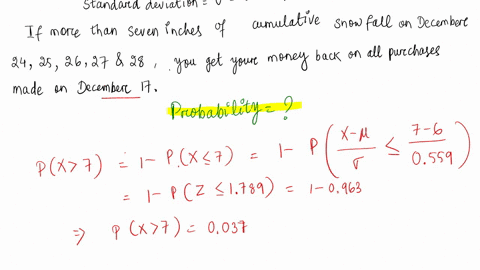 Standard deviation =
If more than seven inches of cumulative snowfall on Decembere
24, 25, 26, 27 & 28, you get youre money back on all purchases
made on Decembere 17.
Probability = ?
P(X>7) = 1 - P(X≤7) = 1 - P((X-μ)/σ ≤ (7-6)/0.559)
= 1 - P(Z ≤ 1.789) = 1 - 0.963
⇒ P(X>7) = 0.037